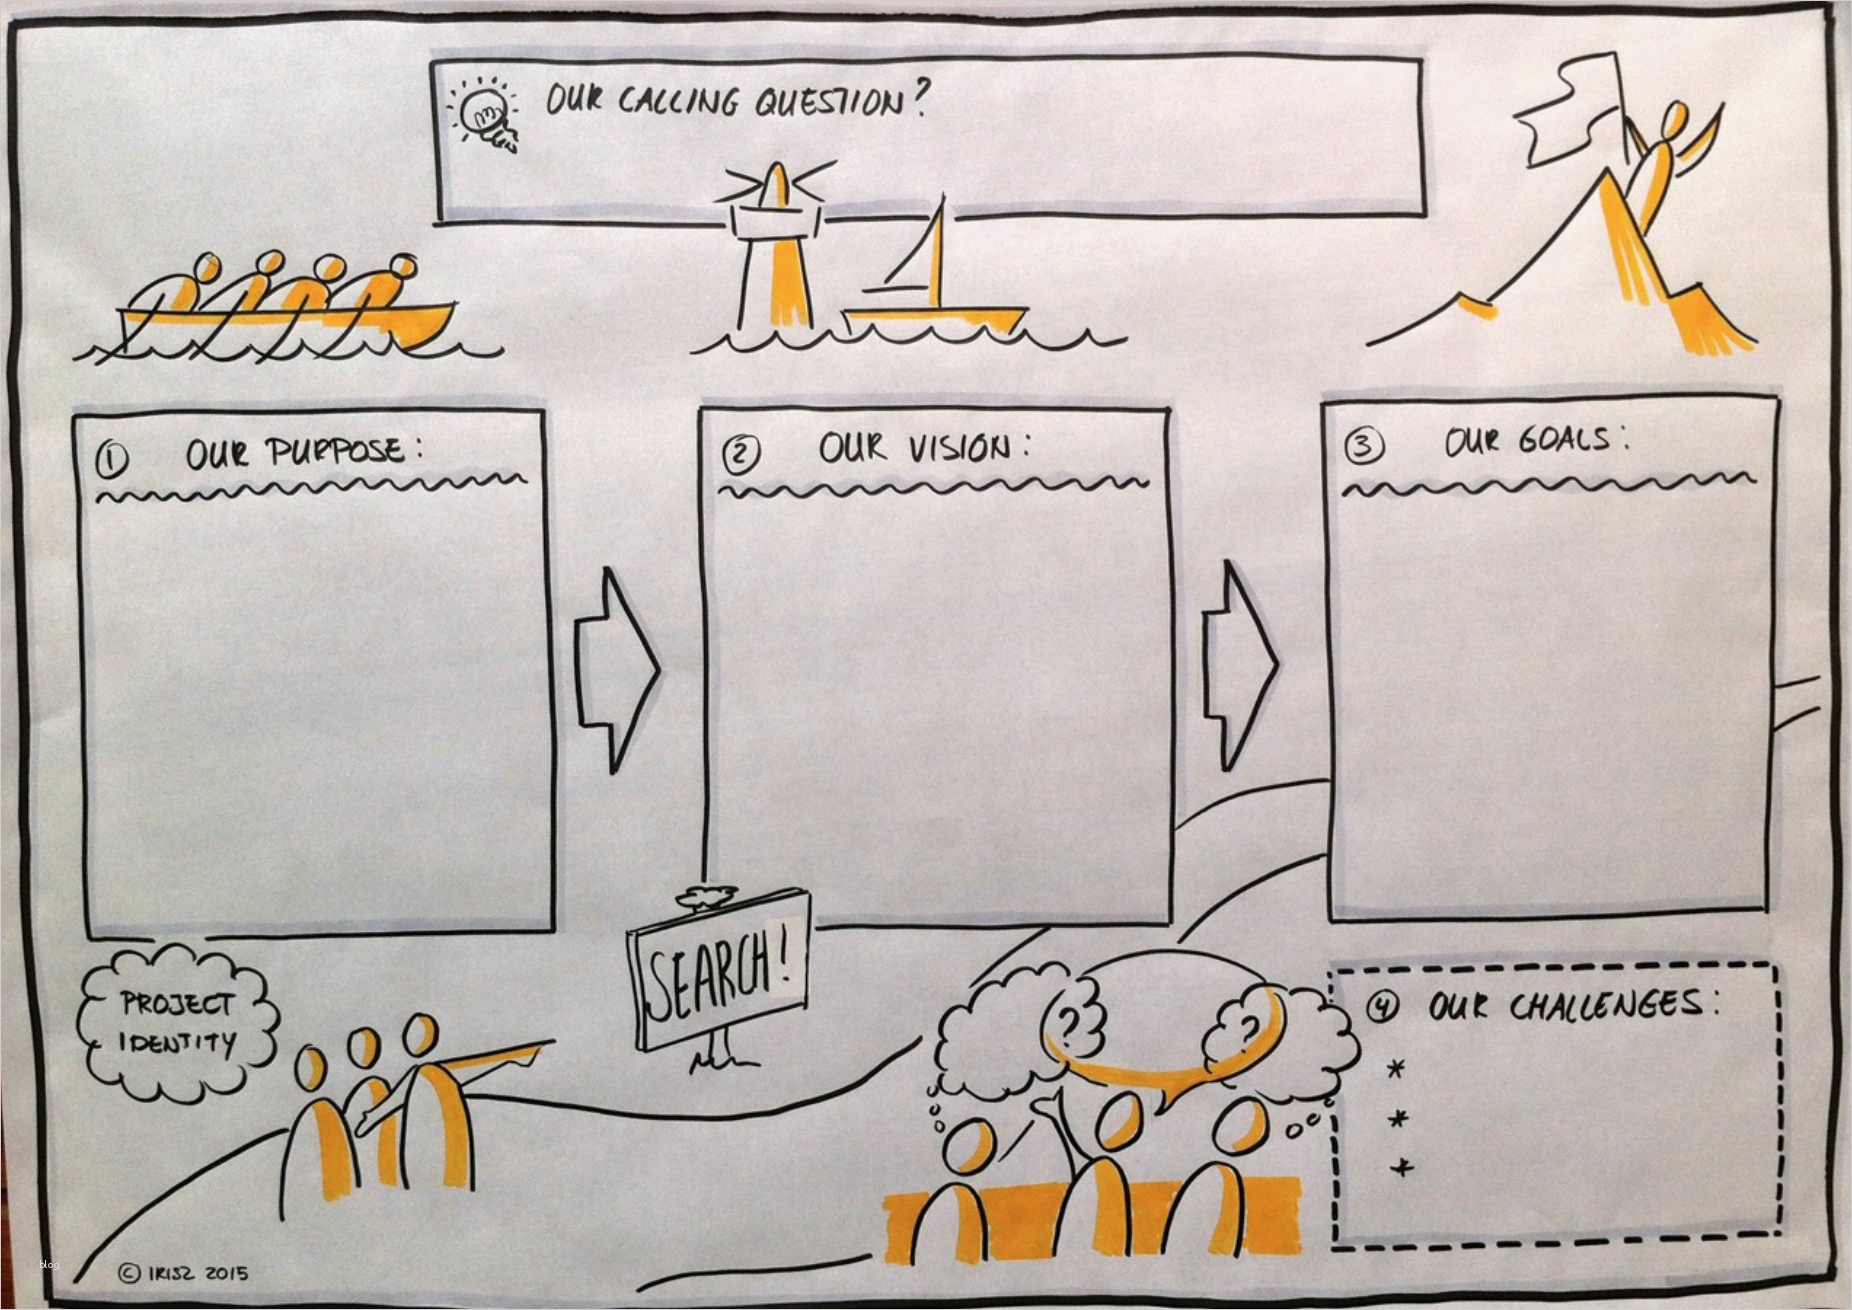 OUR CALLING QUESTION?
① OUR PURPOSE:
② OUR VISION:
③ OUR GOALS:
SEARCH!
PROJECT
IDENTITY
? ?
④ OUR CHALLENGES:
*
*
*
blog
© IRISZ 2015